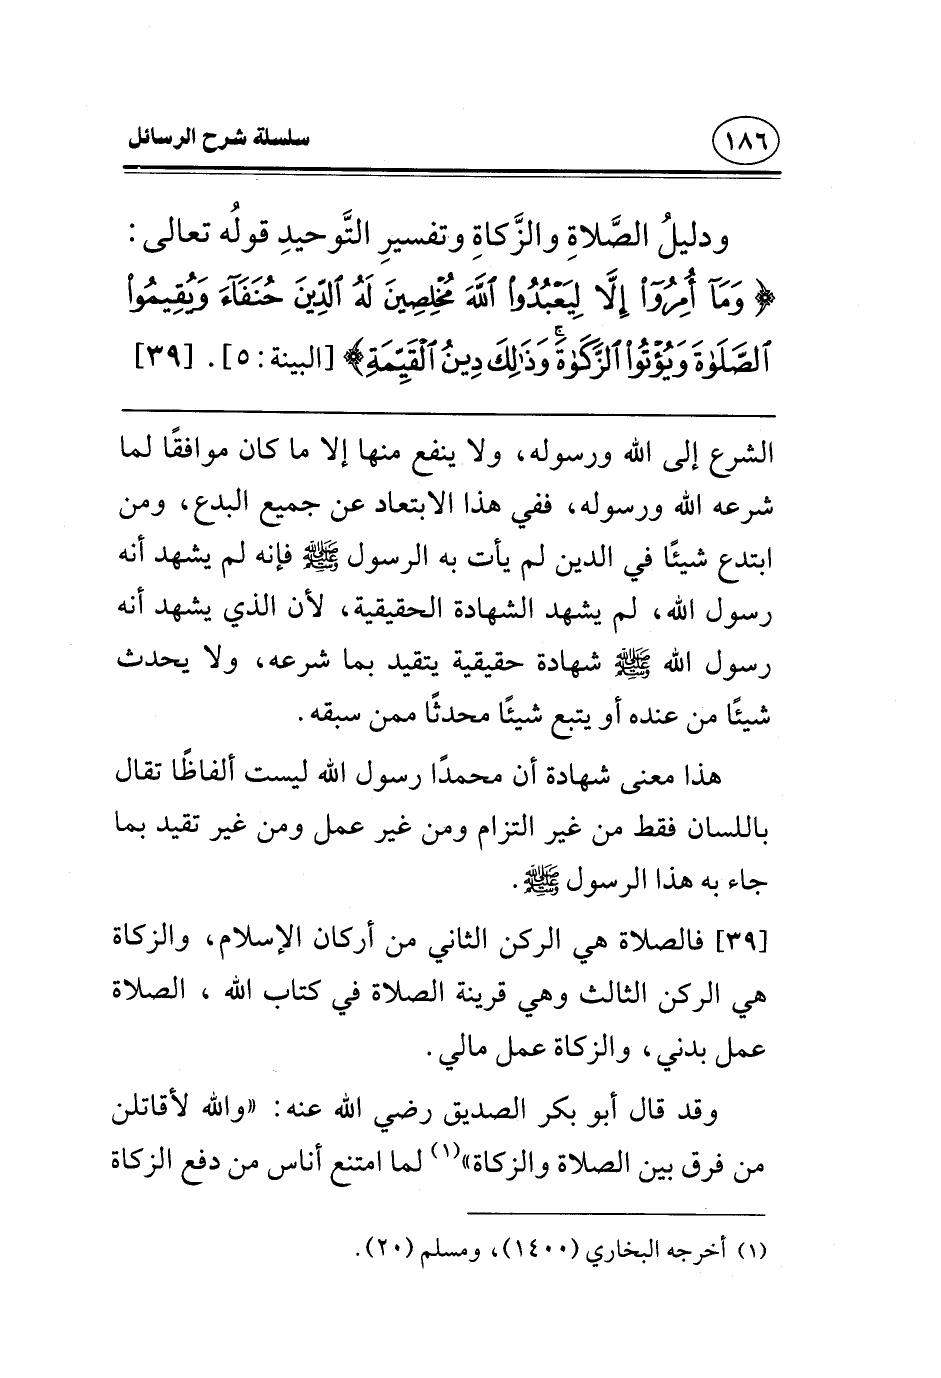 ١٨٦
سلسلة شرح الرسائل
ودليلُ الصَّلاةِ والزَّكاةِ وتفسيرِ التَّوحيدِ قولُه تعالى:
﴿وَمَآ أُمِرُوٓا۟ إِلَّا لِيَعْبُدُوا۟ ٱللَّهَ مُخْلِصِينَ لَهُ ٱلدِّينَ حُنَفَآءَ وَيُقِيمُوا۟
ٱلصَّلَوٰةَ وَيُؤْتُوا۟ ٱلزَّكَوٰةَ ۚ وَذَٰلِكَ دِينُ ٱلْقَيِّمَةِ﴾ [البينة: ٥]. [٣٩]
الشرع إلى الله ورسوله، ولا ينفع منها إلا ما كان موافقًا لما
شرعه الله ورسوله، ففي هذا الابتعاد عن جميع البدع، ومن
ابتدع شيئًا في الدين لم يأت به الرسول ﷺ فإنه لم يشهد أنه
رسول الله، لم يشهد الشهادة الحقيقية، لأن الذي يشهد أنه
رسول الله ﷺ شهادة حقيقية يتقيد بما شرعه، ولا يحدث
شيئًا من عنده أو يتبع شيئًا محدثًا ممن سبقه.
هذا معنى شهادة أن محمدًا رسول الله ليست ألفاظًا تقال
باللسان فقط من غير التزام ومن غير عمل ومن غير تقيد بما
جاء به هذا الرسول ﷺ.
[٣٩] فالصلاة هي الركن الثاني من أركان الإسلام، والزكاة
هي الركن الثالث وهي قرينة الصلاة في كتاب الله ، الصلاة
عمل بدني، والزكاة عمل مالي.
وقد قال أبو بكر الصديق رضي الله عنه: «والله لأقاتلن
من فرق بين الصلاة والزكاة»(١) لما امتنع أناس من دفع الزكاة
(١) أخرجه البخاري (١٤٠٠)، ومسلم (٢٠).